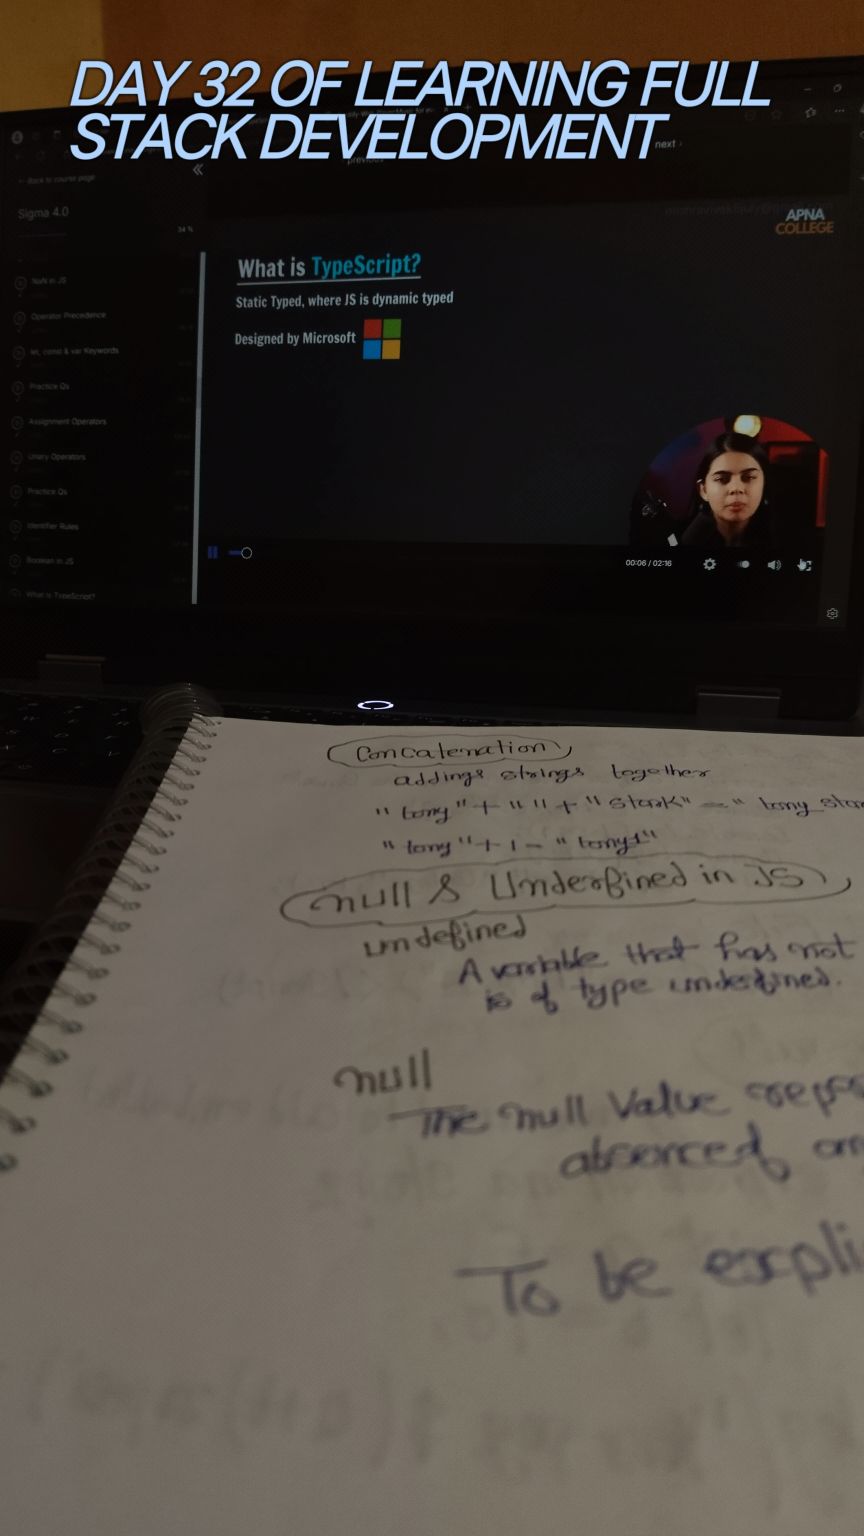 DAY 32 OF LEARNING FULL
STACK DEVELOPMENT
next ›
previous
← Back to course page
Sigma 4.0
34 %
NaN in JS
Operator Precedence
let, const & var Keywords
Practice Qs
Assignment Operators
Unary Operators
Practice Qs
Identifier Rules
Boolean in JS
What is TypeScript?
APNA
COLLEGE
What is TypeScript?
Static Typed, where JS is dynamic typed
Designed by Microsoft
00:06 / 02:16
Concatenation
addings strings together
"tony" + " " + "Stark" = "tony star
"tony" + 1 = "tony1"
null & Underfined in JS
undefined
A variable that has not
is of type undefined.
null
The null Value repre
absenced, or
To be expli